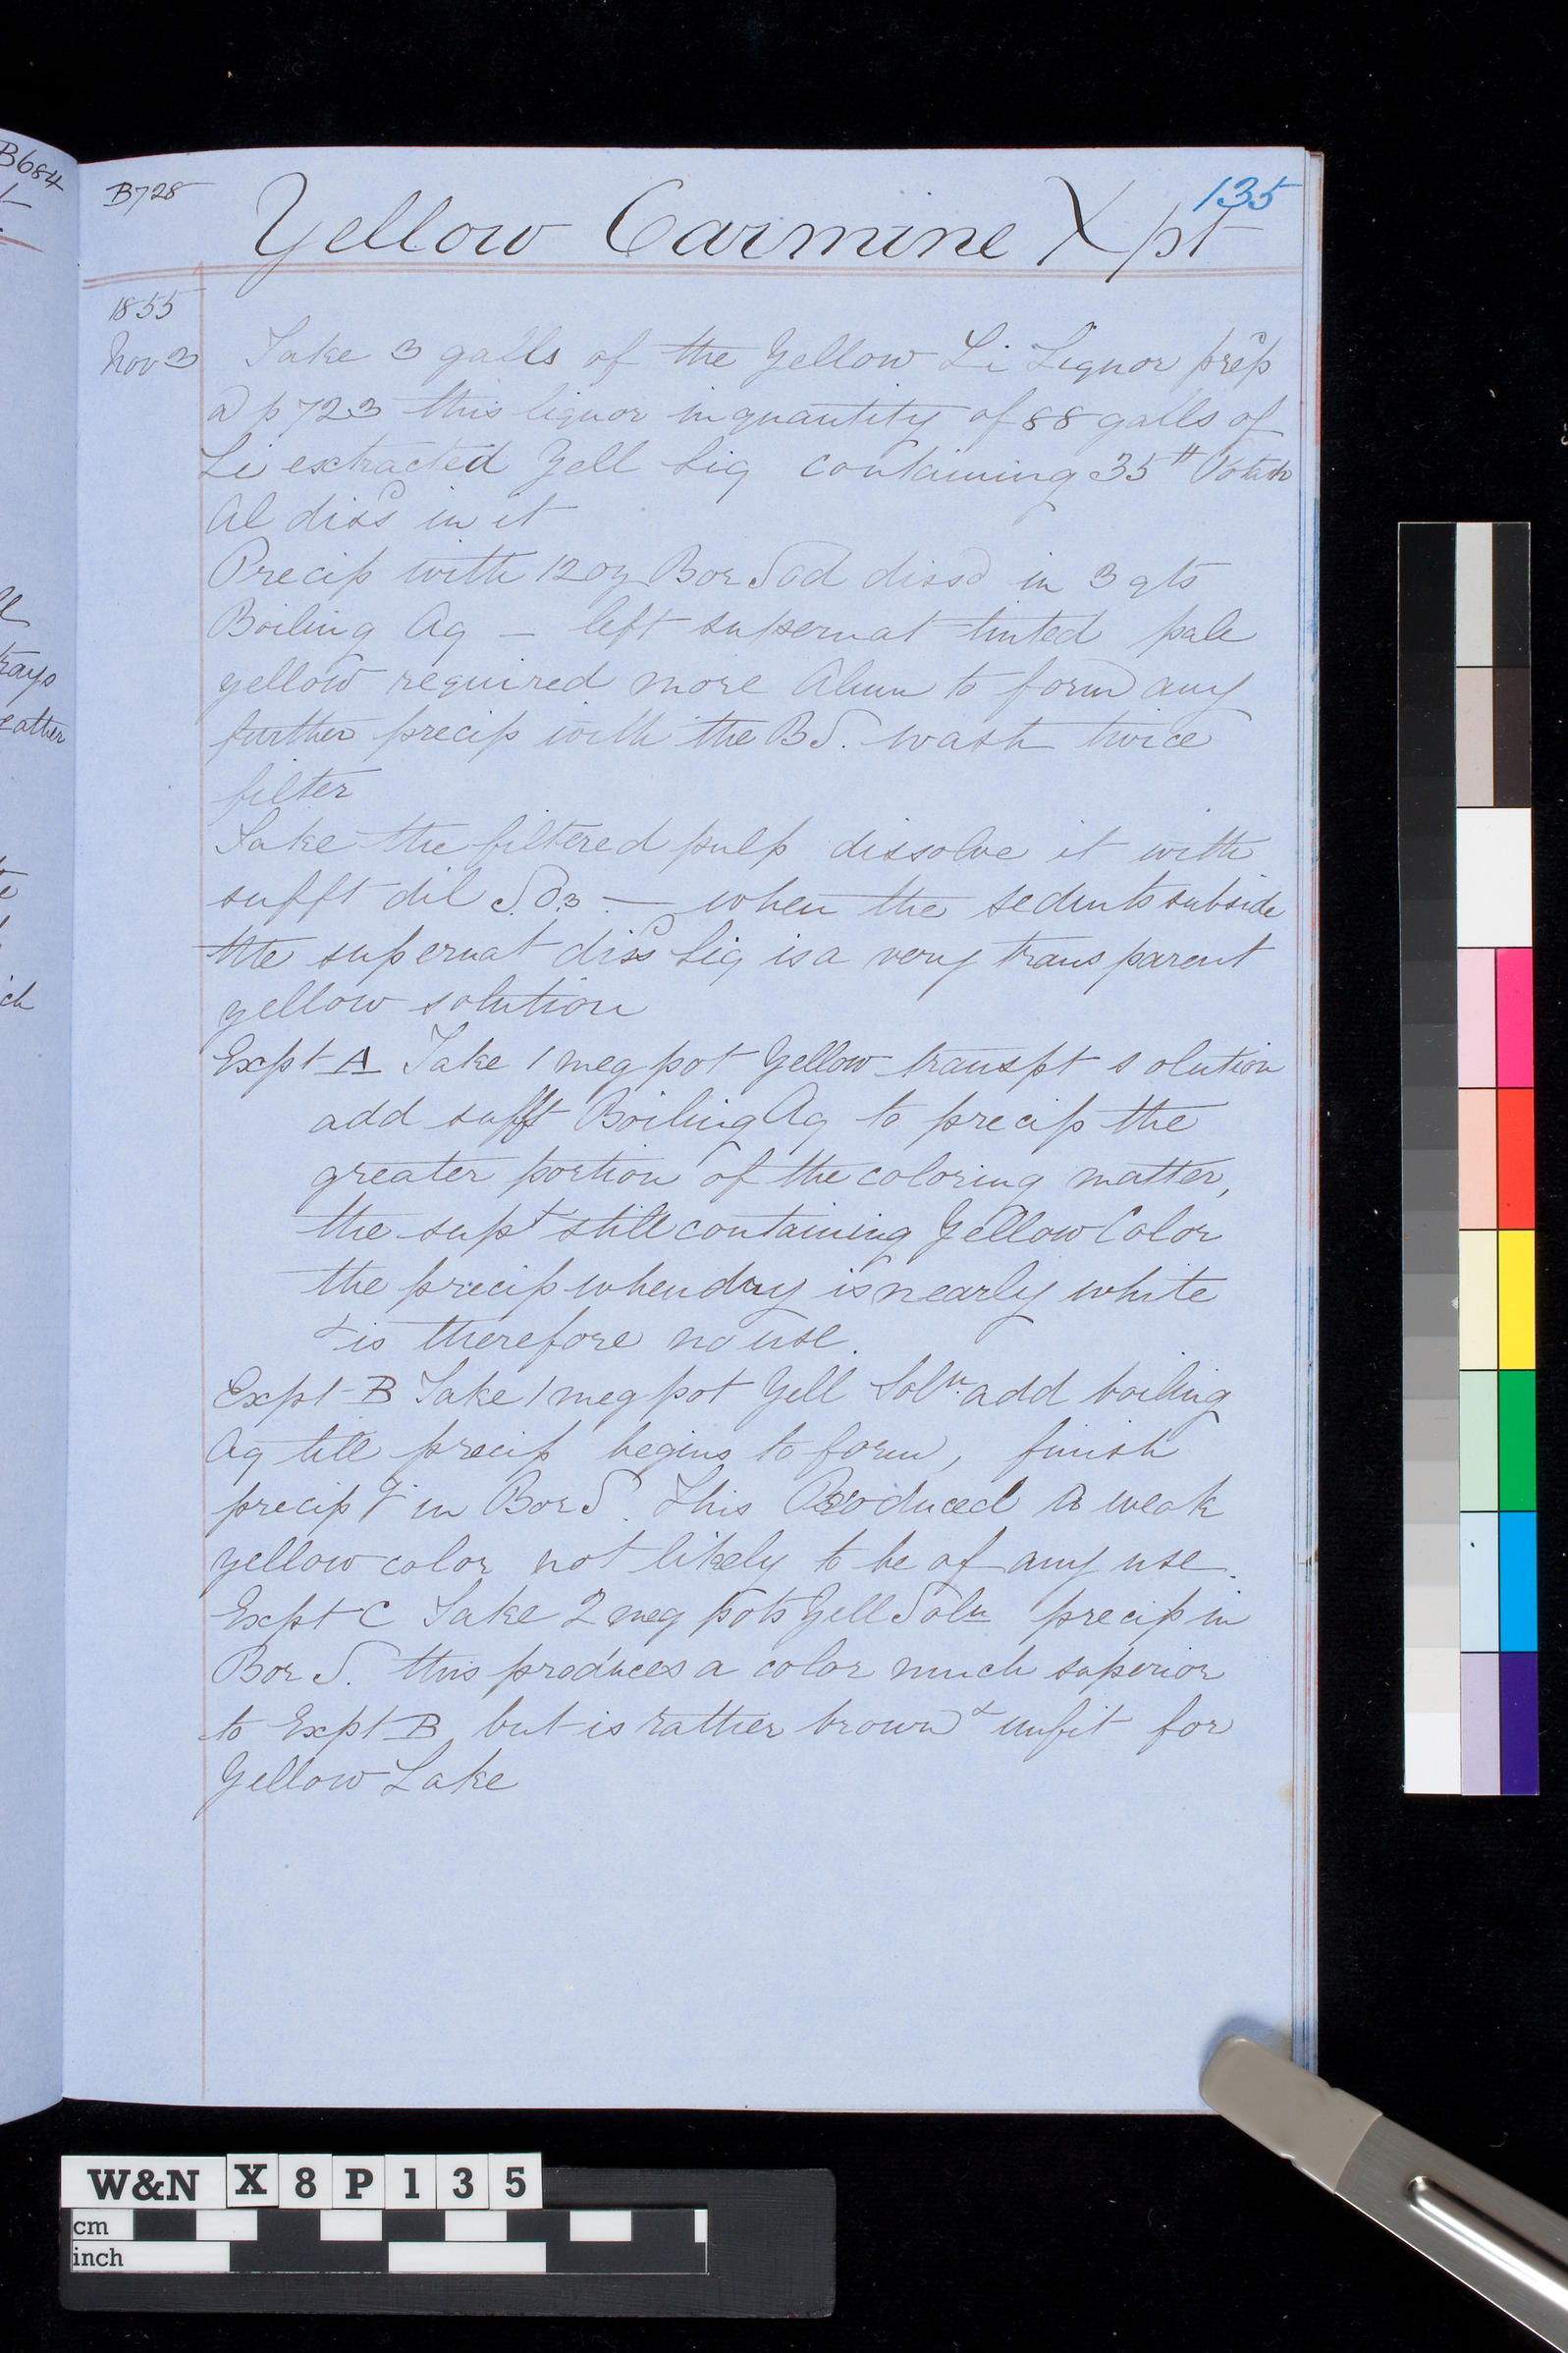 B684
B728
135
Yellow Carmine Xpt
1855
Nov 3 Take 3 galls of the Yellow Li Liquor prepd
@ p 723 this liquor in quantity of 88 galls of
Li extracted Yell Liq containing 35 # Potash
Al dissd in it
Precip with 12 oz Bor Sod dissd in 3 qts
Boiling Aq — left supernat tinted pale
yellow required more Alum to form any
further precip with the B S. wash twice
filter
Take the filtered pulp dissolve it with
sufft dil S.O3. — when the sedints subside
the supernat dissd Liq is a very transparent
yellow solution
Expt A Take 1 meg pot Yellow transpt solution
add sufft Boiling Aq to precip the
greater portion of the coloring matter,
the supt still containing Yellow Color
the precip when dry is nearly white
& is therefore no use.
Expt B Take 1 meg pot Yell Soln. add boiling
Aq till precip begins to form, finish
precipg in Bor S. This Produced a weak
yellow color not likely to be of any use.
Expt C Take 2 meg pots Yell Soln precip in
Bor S. this produces a color much superior
to Expt B but is rather brown & unfit for
Yellow Lake
rays
eather
ch
W&N X 8 P 1 3 5
cm
inch